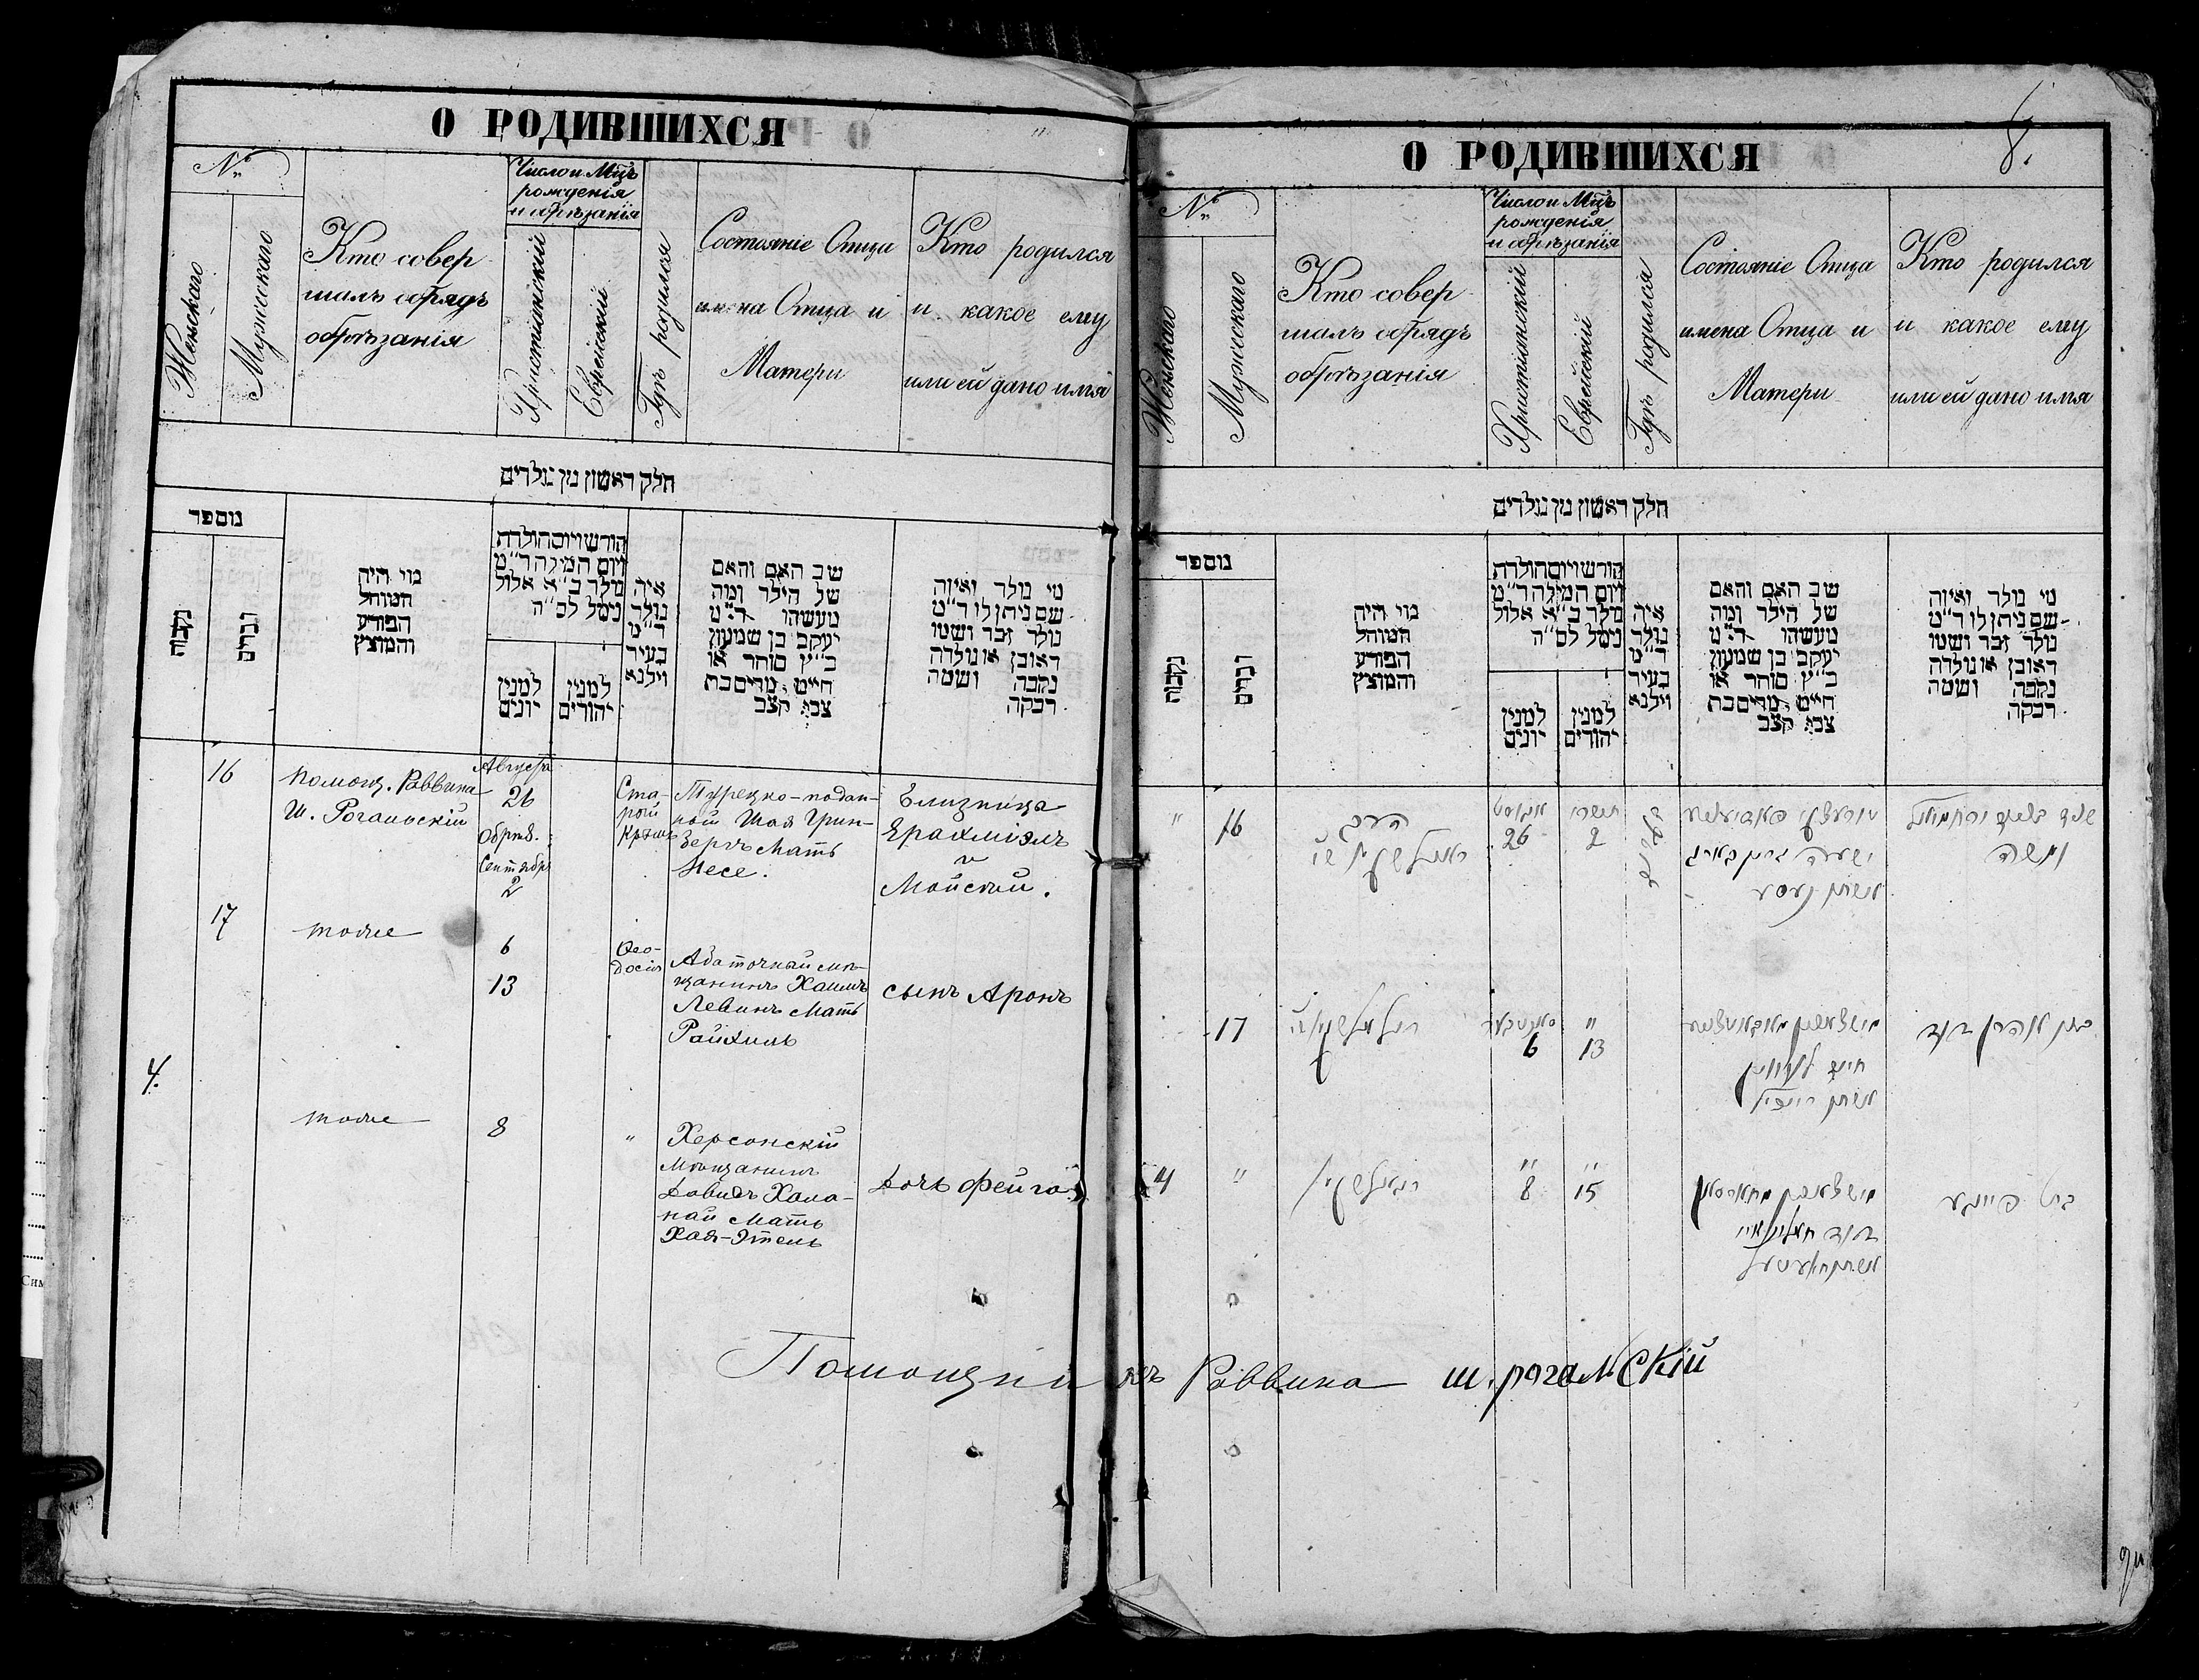 О РОДИВШИХСЯ
№
Женскаго
Мужескаго
Кто совер
шалъ обрядъ
обрѣзанія
Число и Мцъ
рожденія
и обрѣзанія
Христіанскій
Еврейскій
Гдѣ родился
Состояніе Отца
имена Отца и
Матери
Кто родился
и какое ему
или ей дано имя
חלק ראשון מן נולדים
מספר
נקבות
זכרים
מי היה
המוהל
הפורע
והמוצץ
חודש ויום הולדת
ויום המילה ד״מ
נולד ב״א אלול
נימל לס״ה
למנין
יונים
למנין
יהודים
איה
נולד
ד״מ
בעיר
וילנא
שב האם והאם
של הילד ומה
מעשהו ד״מ
יעקב בן שמעון
כ״ץ סוחר או
חייט מרים בת
צבי קצב
מי נולד ואיזה
שם ניתן לו ד״מ
נולד זכר ושמו
ראובן או נולדה
נקבה ושמה
רבקה
16
помощ. Раввина
Ш. Рогальскій
Августа
26
Обрѣз.
Сентябр
2
Ста-
рый
Крымъ
Турецко-подан-
ный Шая Грин-
бергъ Мать
Несе.
Близнеца
Ерахміэлъ
и
Мойсей.
17
тоже
6
13
Ѳео-
досія
мѣ-
щанинъ Хаимъ
Левинъ Мать
Райхиль
сынъ Аронъ
4.
тоже
8
"
Херсонскій
Мѣщанинъ
Давидъ Хала-
най Мать
Хая-Этель
дочь Фейга
Помощникъ Раввина Ш. Рогальскій
О РОДИВШИХСЯ
8.
№
Женскаго
Мужескаго
Кто совер
шалъ обрядъ
обрѣзанія
Число и Мцъ
рожденія
и обрѣзанія
Христіанскій
Еврейскій
Гдѣ родился
Состояніе Отца
имена Отца и
Матери
Кто родился
и какое ему
или ей дано имя
חלק ראשון מן נולדים
מספר
נקבות
זכרים
מי היה
המוהל
הפורע
והמוצץ
חודש ויום הולדת
ויום המילה ד״מ
נולד ב״א אלול
נימל לס״ה
למנין
יונים
למנין
יהודים
איה
נולד
ד״מ
בעיר
וילנא
שב האם והאם
של הילד ומה
מעשהו ד״מ
יעקב בן שמעון
כ״ץ סוחר או
חייט מרים בת
צבי קצב
מי נולד ואיזה
שם ניתן לו ד״מ
נולד זכר ושמו
ראובן או נולדה
נקבה ושמה
רבקה
"
16
הרב
אגוסט
26
תשרי
2
ישעיה גרינבארג
אשתו נעסע
ומשה
17
6
"
13
חיים לעווין
אשתו רייכיל
בן אהרן דוד
4
"
"
8
"
15
דוד
בת פייגע